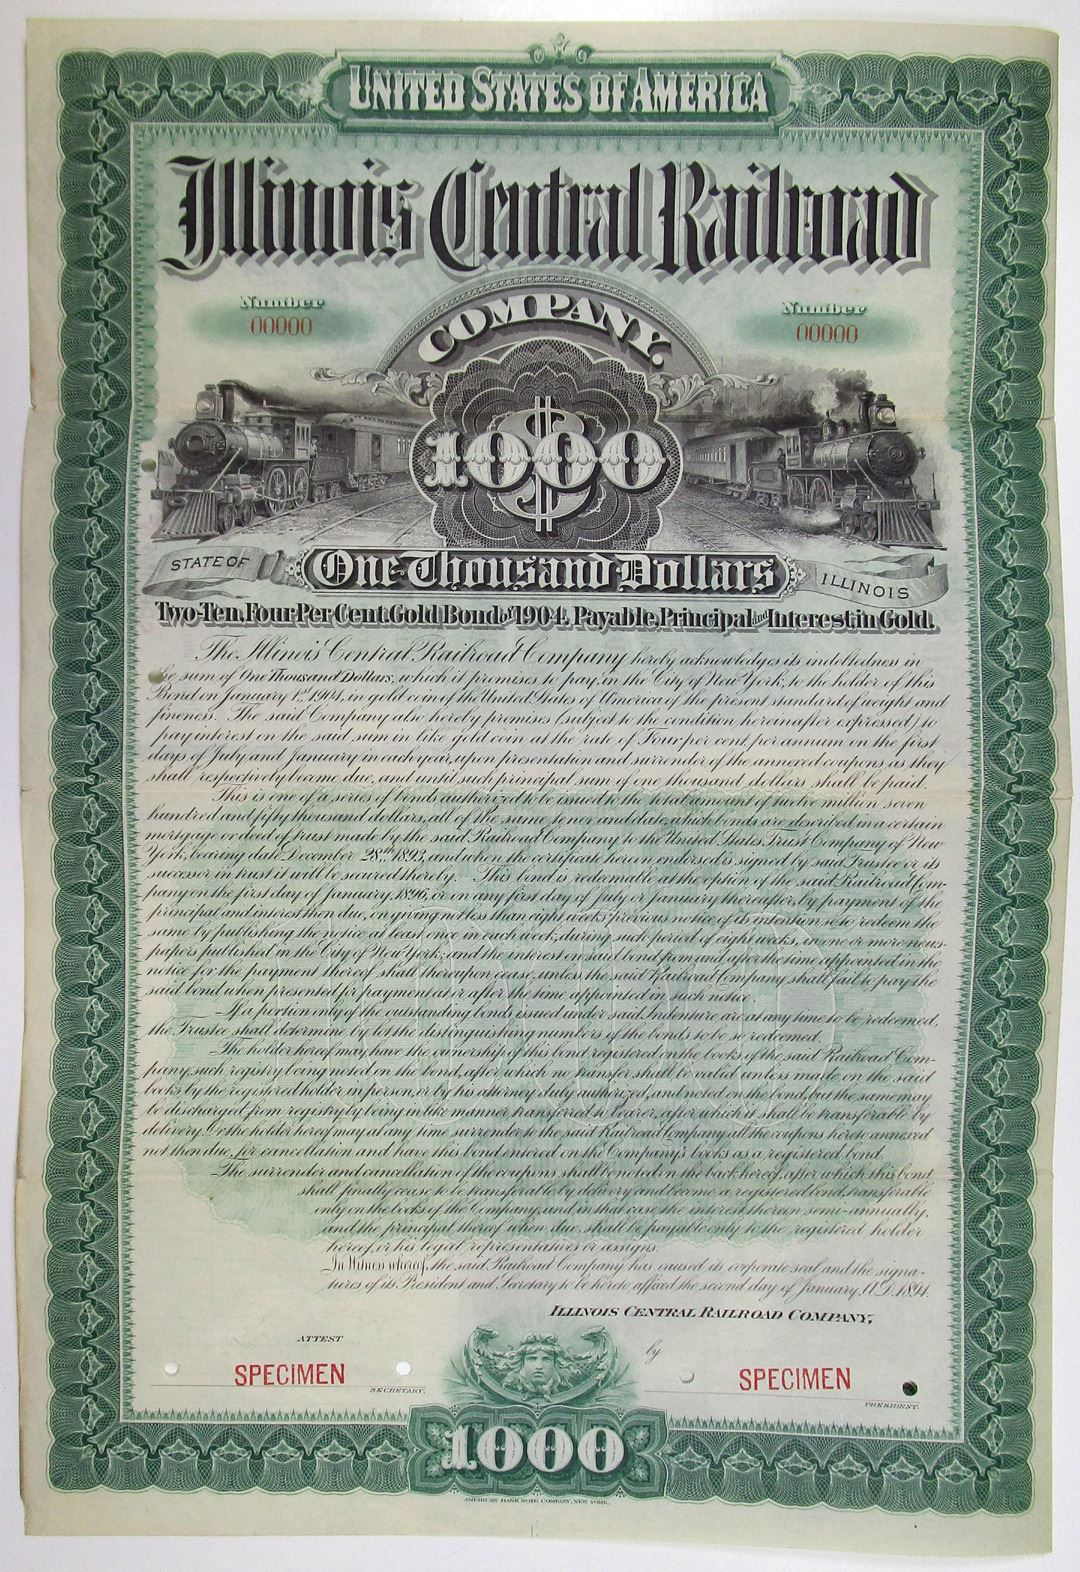 UNITED STATES OF AMERICA
Illinois Central Railroad
COMPANY.
Number
00000
Number
00000
$1000
STATE OF
One Thousand Dollars
ILLINOIS
Two-Ten, Four Per Cent. Gold Bond of 1904. Payable, Principal and Interest, in Gold.
The Illinois Central Railroad Company hereby acknowledges its indebtedness in
the sum of One Thousand Dollars, which it promises to pay, in the City of New York, to the holder of this
Bond on January 1st 1904, in gold coin of the United States of America of the present standard of weight and
fineness. The said Company also hereby promises (subject to the condition hereinafter expressed) to
pay interest on the said sum in like gold coin at the rate of Four per cent, per annum on the first
days of July and January in each year, upon presentation and surrender of the annexed coupons as they
shall respectively become due, and until such principal sum of one thousand dollars shall be paid.
This is one of a series of bonds authorized to be issued to the total amount of twelve million seven
hundred and fifty thousand dollars, all of the same tenor and date, which bonds are described in a certain
mortgage or deed of trust made by the said Railroad Company to the United States Trust Company of New
York, bearing date December 28th 1893, and when the certificate hereon endorsed is signed by said Trustee or its
successor in trust it will be secured thereby. This bond is redeemable at the option of the said Railroad Com-
pany on the first day of January 1896, or on any first day of July or January thereafter, by payment of the
principal and interest then due, on giving not less than eight weeks previous notice of its intention so to redeem the
same by publishing the notice at least once in each week, during such period of eight weeks, in one or more news-
papers published in the City of New York; and the interest on said bond from and after the time appointed in the
notice for the payment thereof shall thereupon cease, unless the said Railroad Company shall fail to pay the
said bond when presented for payment at or after the time appointed in such notice.
If a portion only of the outstanding bonds issued under said Indenture are at any time to be redeemed,
the Trustee shall determine by lot the distinguishing numbers of the bonds to be so redeemed.
The holder hereof may have the ownership of this bond registered on the books of the said Railroad Com-
pany, such registry being noted on the bond, after which no transfer shall be valid unless made on the said
books by the registered holder in person, or by his attorney duly authorized, and noted on the bond, but the same may
be discharged from registry by being in like manner transferred to bearer, after which it shall be transferable by
delivery. Or the holder hereof may at any time surrender to the said Railroad Company all the coupons hereto annexed
not then due, for cancellation and have this bond entered on the Company's books as a registered bond.
The surrender and cancellation of the coupons shall be noted on the back hereof, after which this bond
shall finally cease to be transferable by delivery and become a registered bond, transferable
only on the books of the Company, and in that case the interest thereon semi-annually,
and the principal thereof when due, shall be payable only to the registered holder
hereof, or his legal representatives or assigns.
In Witness whereof, the said Railroad Company has caused its corporate seal, and the signa-
tures of its President and Secretary to be hereto affixed the second day of January, A.D. 1894.
ILLINOIS CENTRAL RAILROAD COMPANY,
ATTEST
by
SPECIMEN
SPECIMEN
SECRETARY.
PRESIDENT.
1000
AMERICAN BANK NOTE COMPANY, NEW YORK.